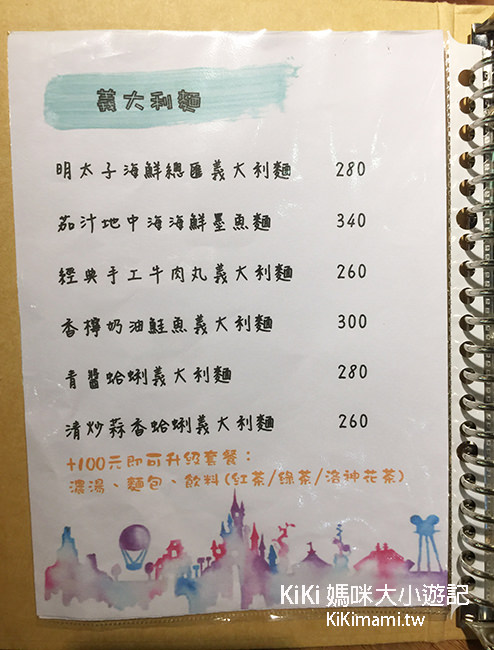 義大利麵
明太子海鮮總匯義大利麵 280
茄汁地中海海鮮墨魚麵 340
經典手工牛肉丸義大利麵 260
香檸奶油鮭魚義大利麵 300
青醬蛤蜊義大利麵 280
清炒蒜香蛤蜊義大利麵 260
+100元即可升級套餐：
濃湯、麵包、飲料(紅茶/綠茶/洛神花茶)
KiKi 媽咪大小遊記
KiKimami.tw